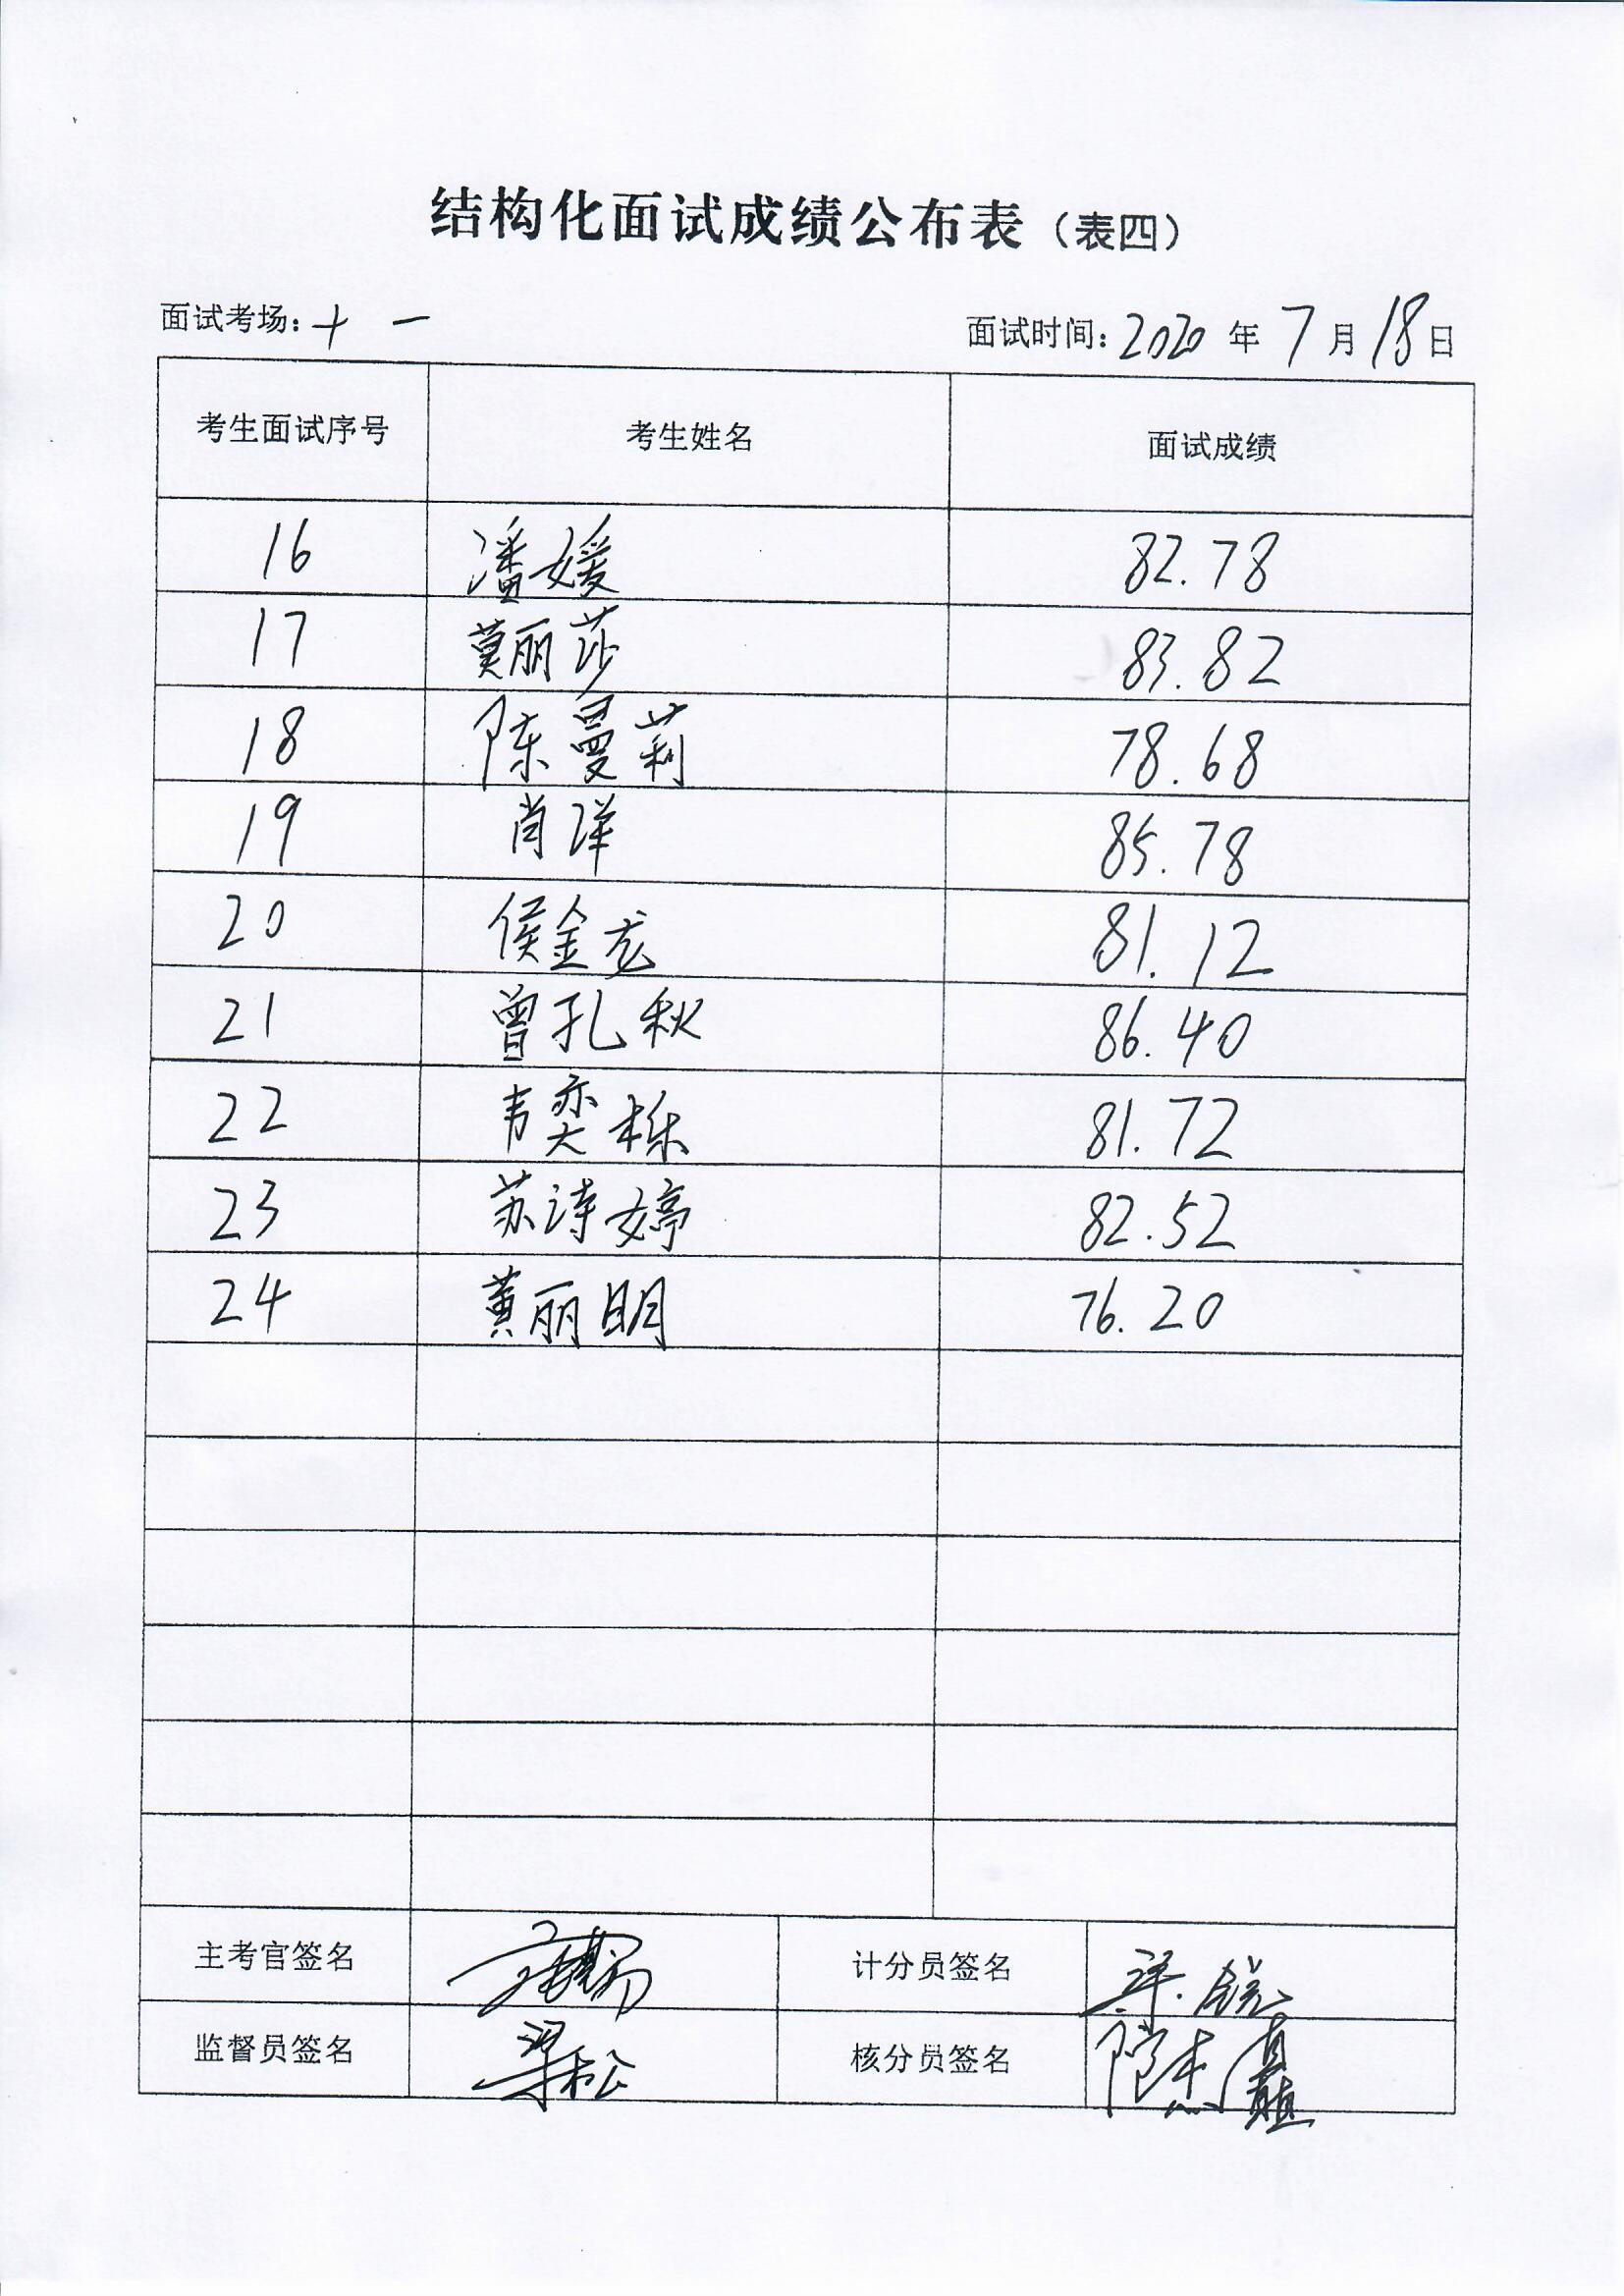 结构化面试成绩公布表（表四）
面试考场：十一 面试时间：2020年7月18日
考生面试序号 考生姓名 面试成绩
16 潘媛 82.78
17 莫丽莎 83.82
18 陈曼莉 78.68
19 肖洋 85.78
20 侯金龙 81.12
21 曾孔秋 86.40
22 韦奕栎 81.72
23 苏诗婷 82.52
24 黄丽明 76.20
主考官签名 计分员签名
监督员签名 梁松 核分员签名